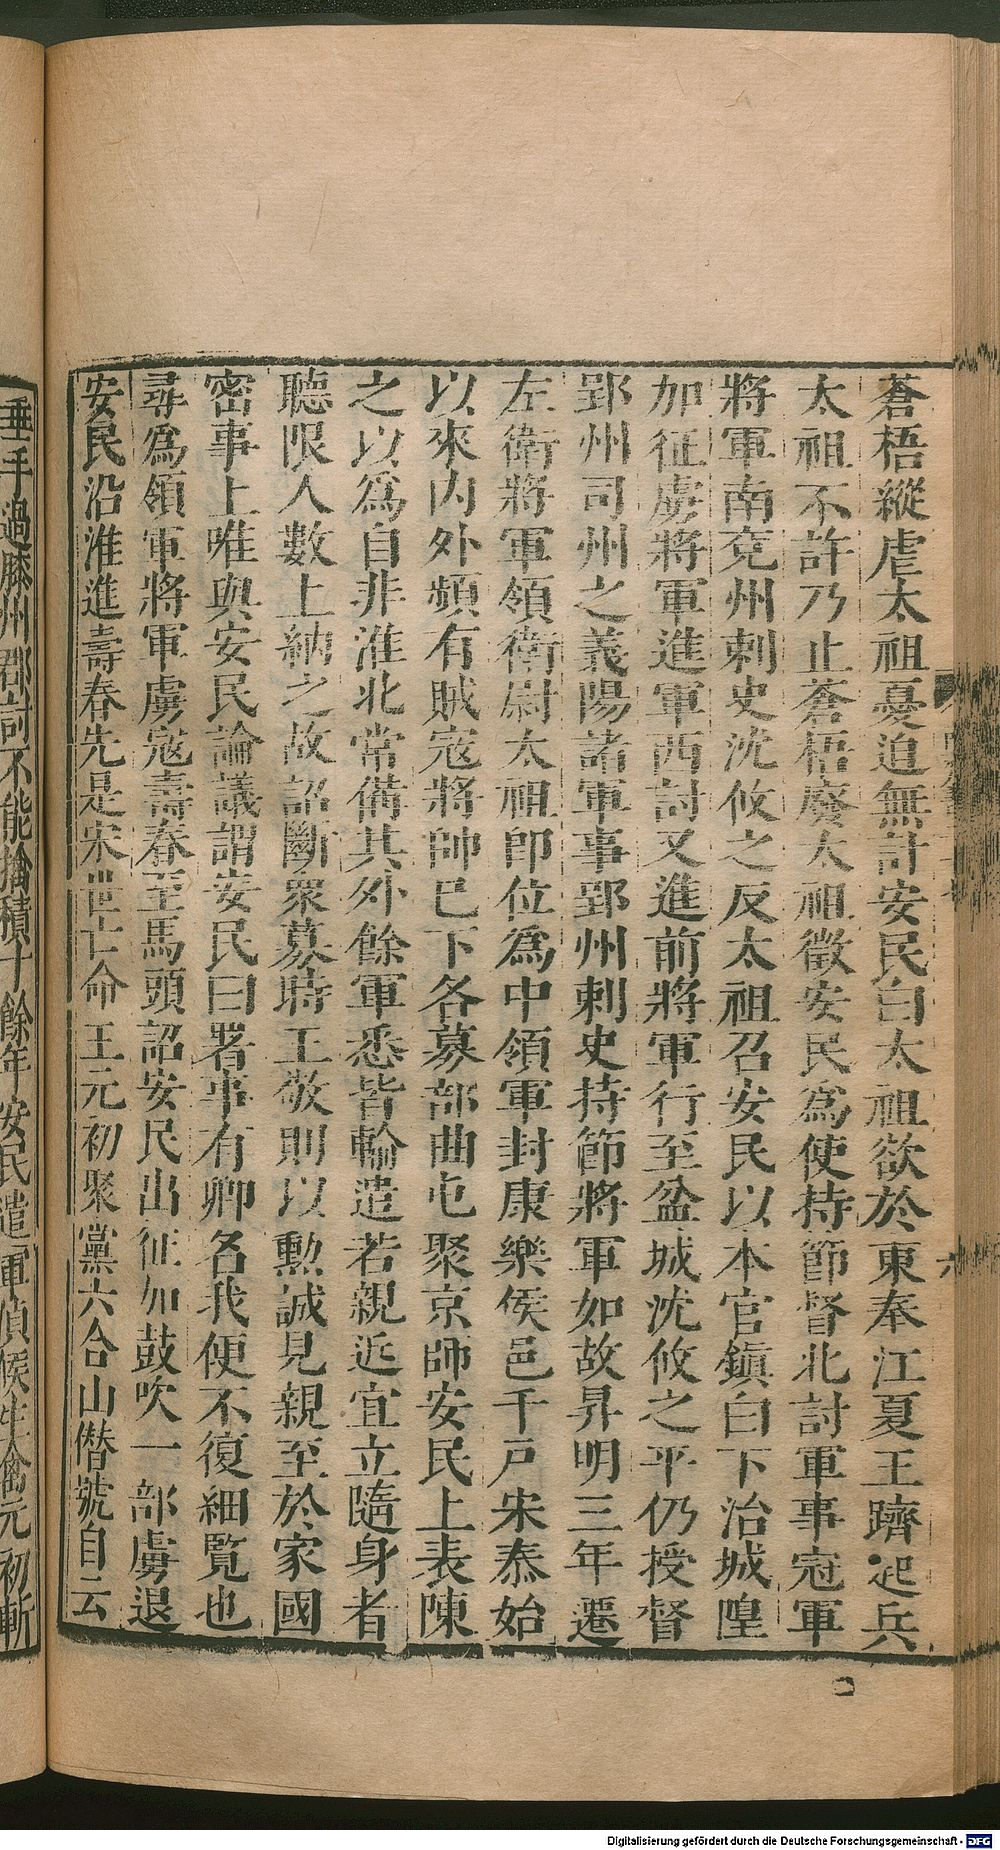 蒼梧縱虐太祖憂迫無計安民白太祖欲於東奉江夏王躋起兵
太祖不許乃止蒼梧廢太祖徵安民爲使持節督北討軍事冠軍
將軍南兗州刺史沈攸之反太祖召安民以本官鎭白下治城隍
加征虜將軍進軍西討又進前將軍行至盆城沈攸之平仍授督
郢州司州之義陽諸軍事郢州刺史持節將軍如故昇明三年遷
左衛將軍領衛尉太祖卽位爲中領軍封康樂侯邑千戶宋泰始
以來內外頻有賊寇將帥已下各募部曲屯聚京師安民上表陳
之以爲自非淮北常備其外餘軍悉皆輸遣若親近宜立隨身者
聽限人數上納之故詔斷衆募時王敬則以勳誠見親至於家國
密事上唯與安民論議謂安民曰署事有卿名我便不復細覽也
尋爲領軍將軍虜寇壽春至馬頭詔安民出征加鼓吹一部虜退
安民沿淮進壽春先是宋世亡命王元初聚黨六合山僭號自云
垂手過膝州郡討不能擒積十餘年安民遣軍偵候生禽元初斬
Digitalisierung gefördert durch die Deutsche Forschungsgemeinschaft - DFG